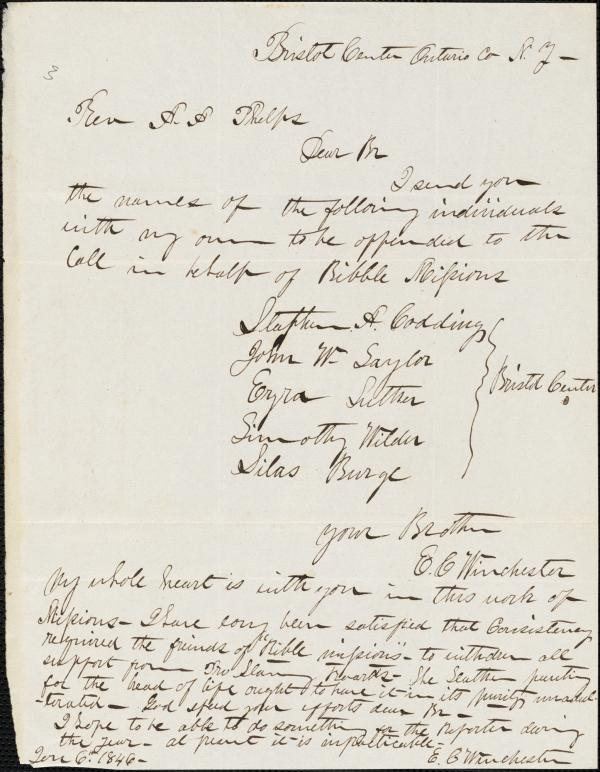 Bristol Center Ontario Co N. Y -
3
Rev A. A Phelps
Dear Br
I send you
the names of the following individuals
with my own to be appended to the
Call in behalf of Bibble Missions
Stephen. A. Codding
John W. Saylor
Ezra Luther
Bristol Center
Timothy Wilder
Silas Burge
your Brother
E. C Winchester
My whole heart is with you in this work of
Missions - I have long been satisfied that Consistency
required the friends of "Bible missions" to withdraw all
support from Pro Slavery Boards - The heathen panting
for the bread of life ought to have it in its purity unadul-
-terated - God speed your efforts dear Br -
I hope to be able to do something for the Reporter during
the year - at present it is impracticable -
Jan 6th 1846 -
E. C Winchester